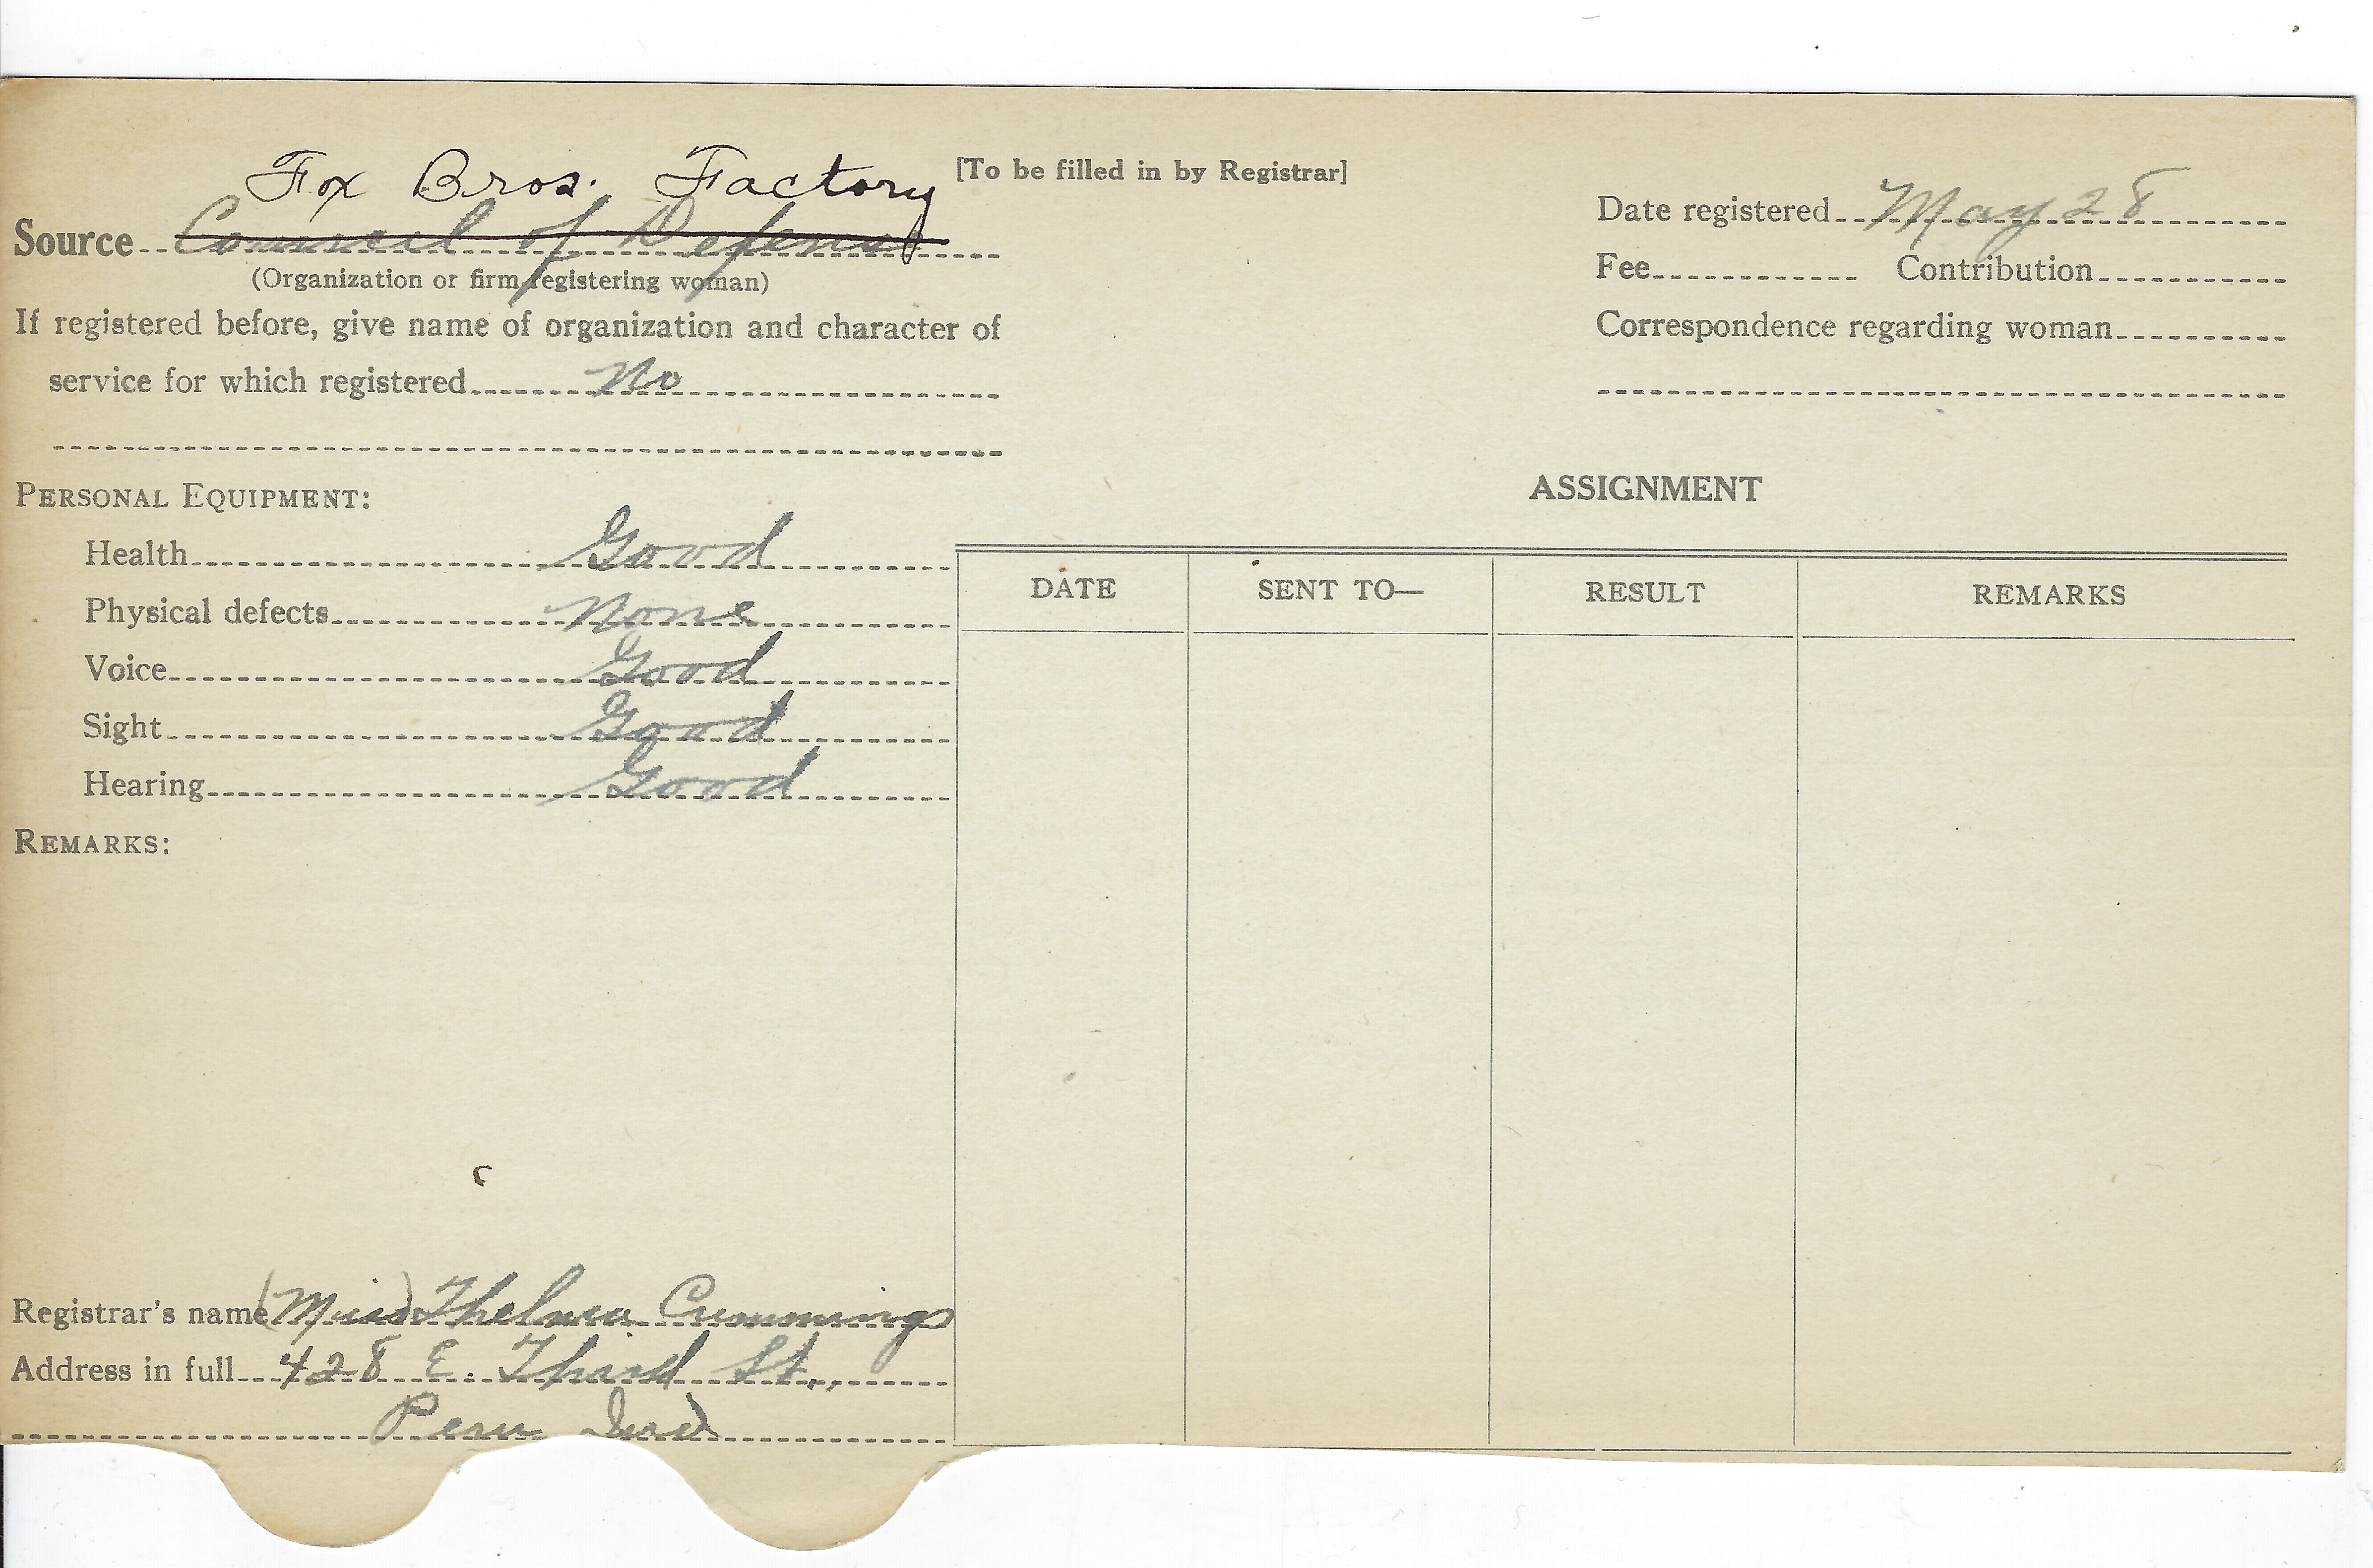 [To be filled in by Registrar]
Fox Bros. Factory
Source Council of Defense
(Organization or firm registering woman)
If registered before, give name of organization and character of
service for which registered No
Date registered May 28
Fee Contribution
Correspondence regarding woman
PERSONAL EQUIPMENT:
Health Good
Physical defects None
Voice Good
Sight Good
Hearing Good
REMARKS:
Registrar's name (Miss) Thelma Cummings
Address in full 428 E. Third St.,
Peru Ind
ASSIGNMENT
DATE SENT TO— RESULT REMARKS